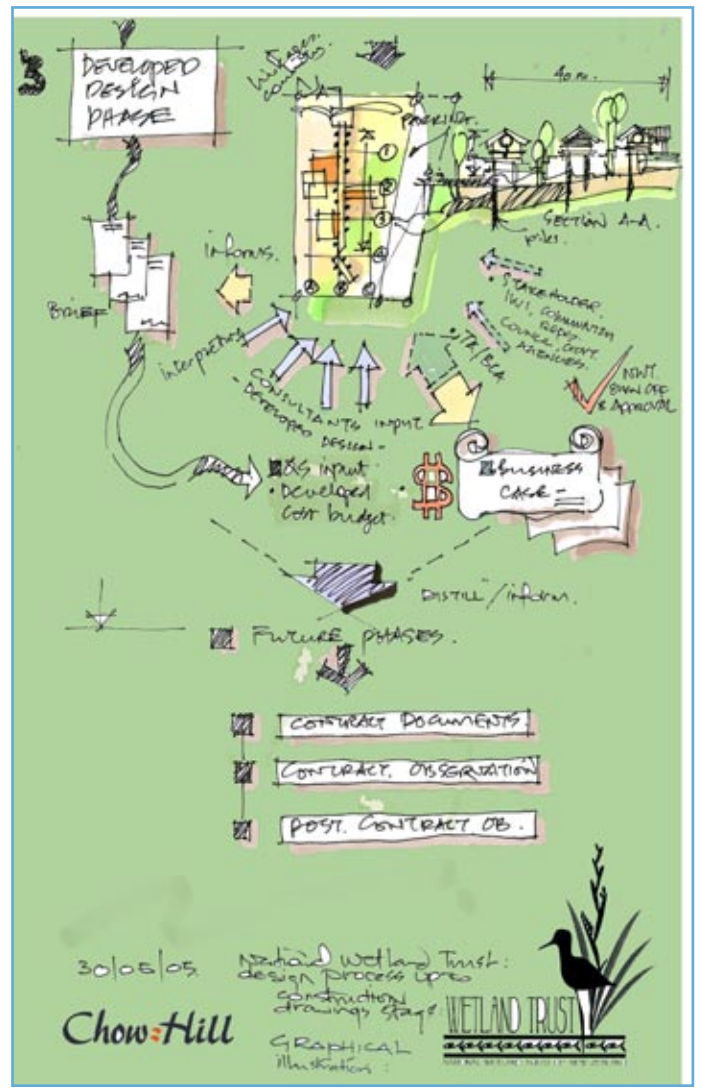 3
DEVELOPED
DESIGN
PHASE
40 m.
PARKING.
1
2
3
SECTION A-A.
piles.
informs.
BRIEF
interpretive
CONSULTANTS INPUT
- DEVELOPED DESIGN -
TA/BCA
• STAKEHOLDER.
IWI, COMMUNITY
REPS.
COUNCIL, GOVT.
AGENCIES.
NWT.
SIGN OFF
& APPROVAL
QS input
• Developed
Cost budget.
$
BUSINESS
CASE -
DISTILL/inform.
FUTURE PHASES.
CONTRACT DOCUMENTS.
CONTRACT. OBSERVATION
POST. CONTRACT OB.
30/05/05.
National Wetland Trust:
design process up to
construction
drawings stage:
GRAPHICAL
illustration:
Chow:Hill
WETLAND TRUST